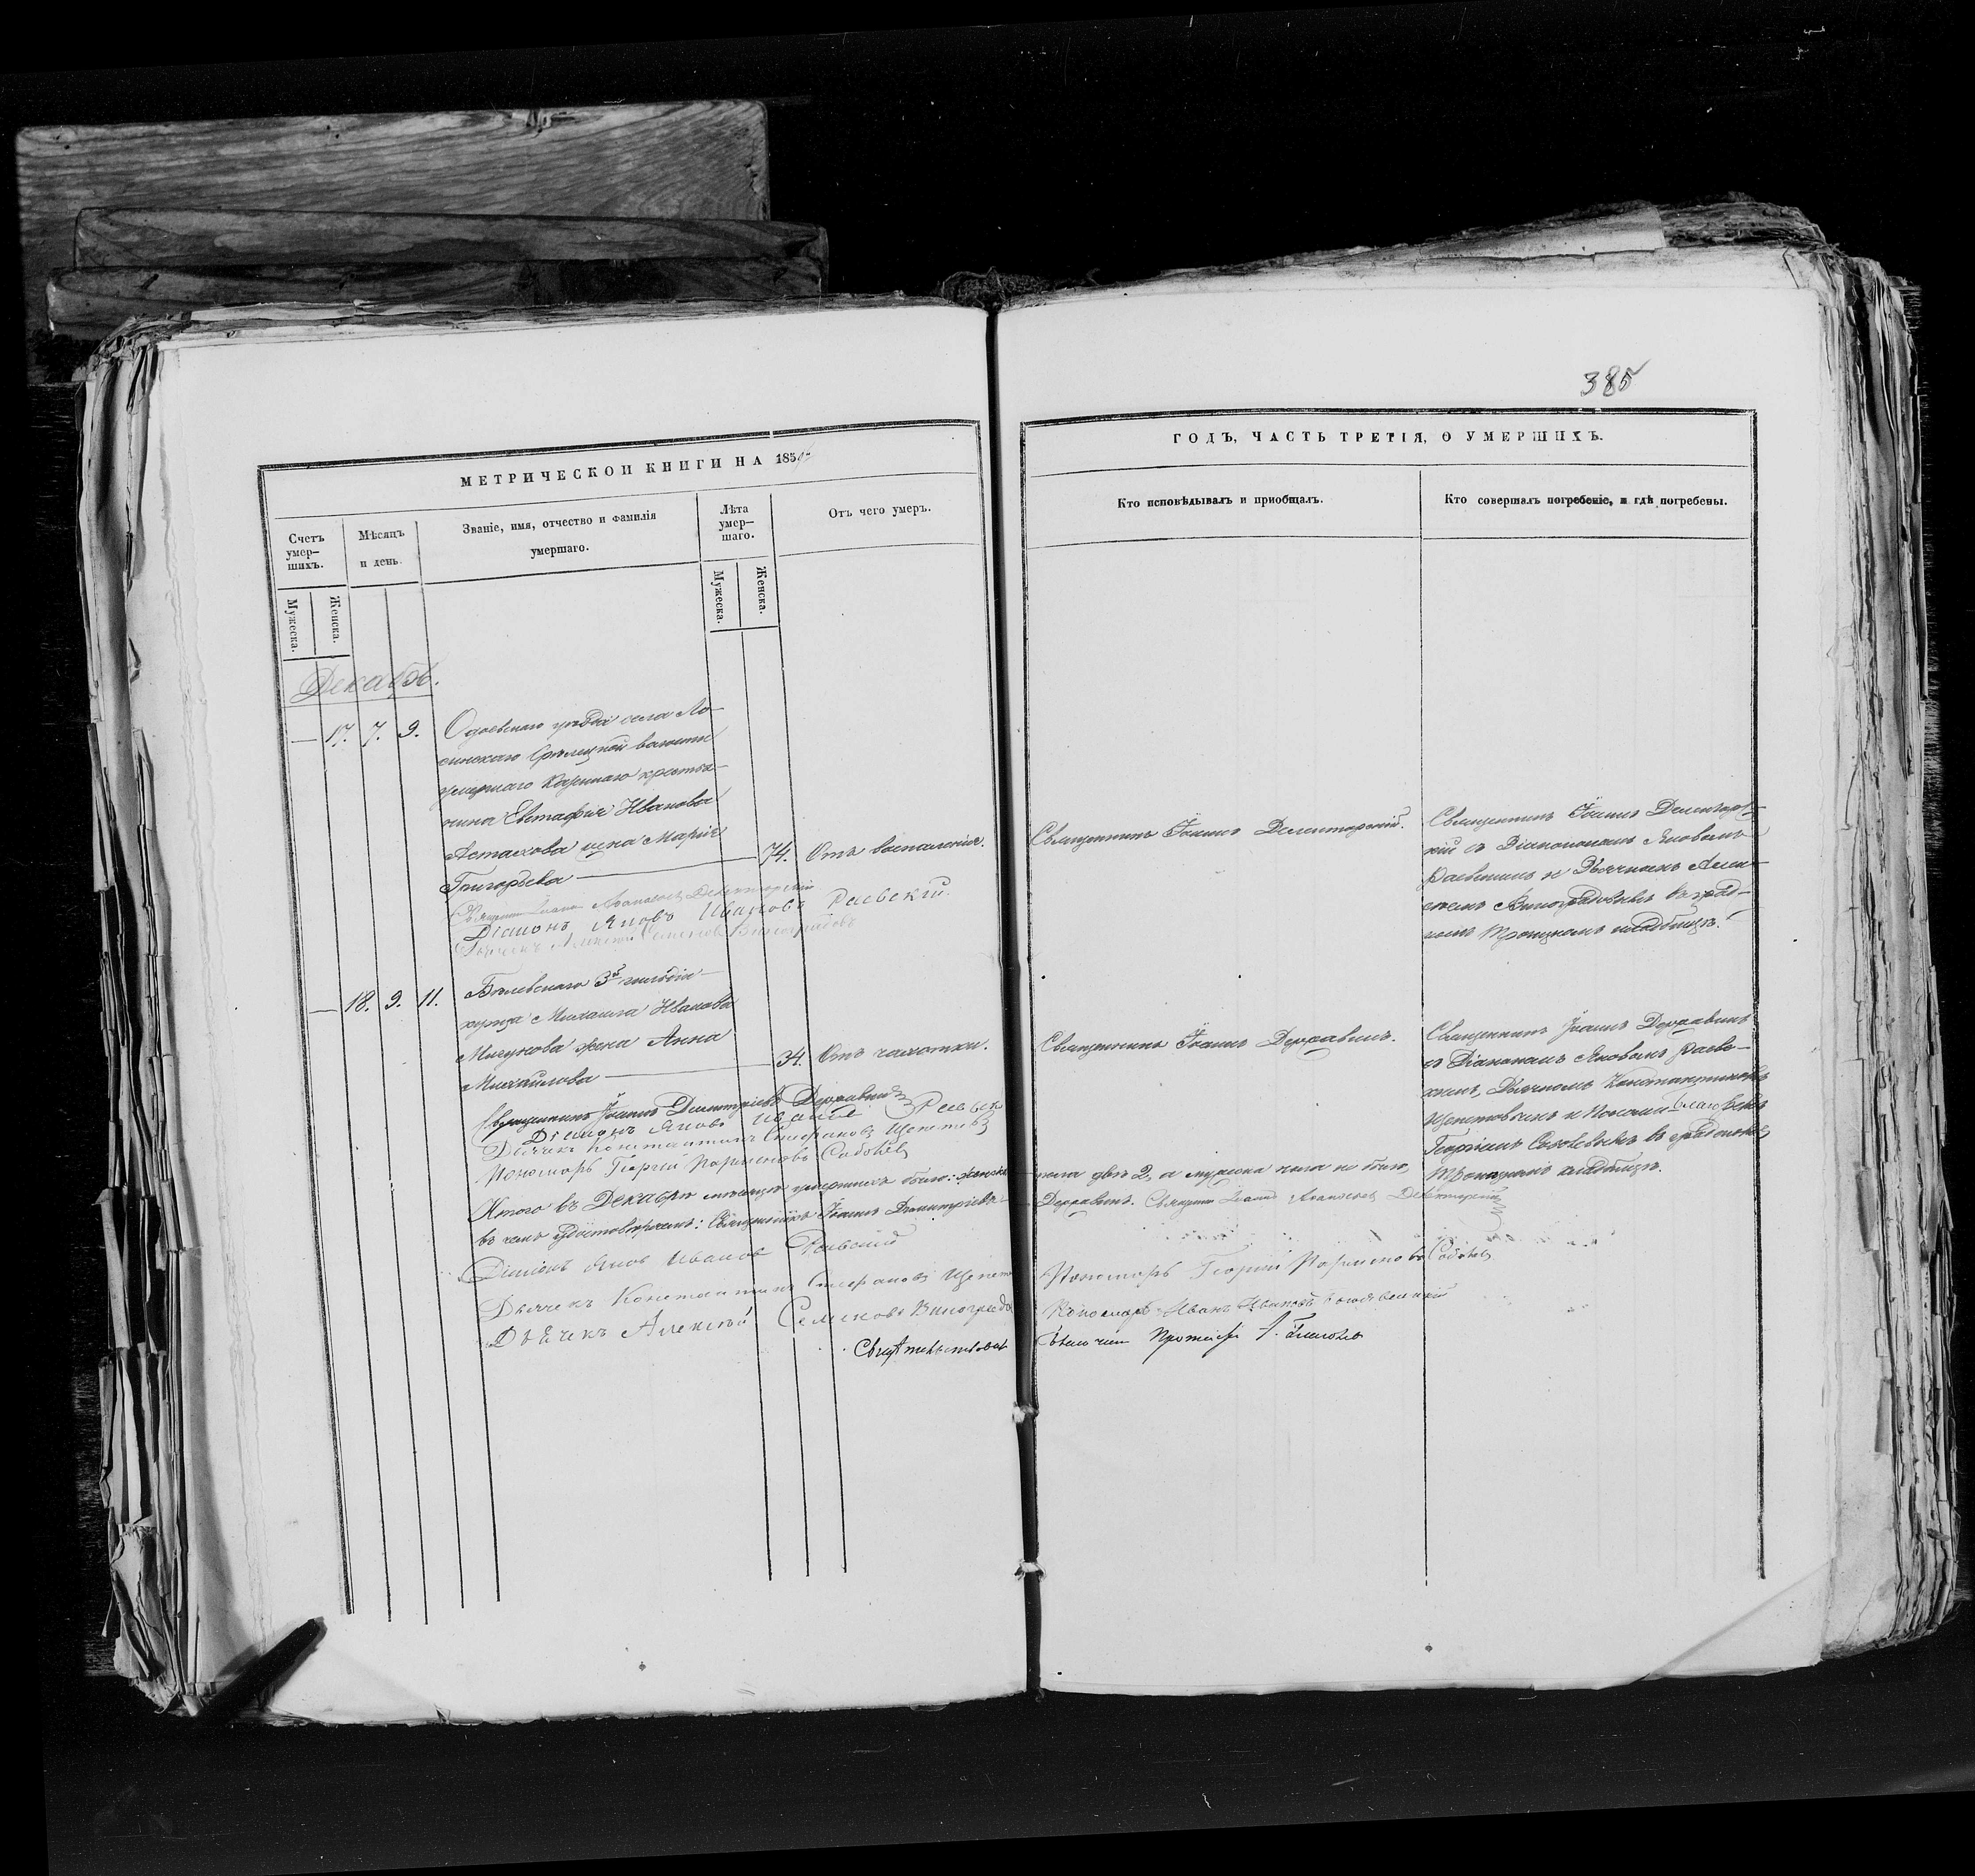 385
МЕТРИЧЕСКОЙ КНИГИ НА 185
Счетъ умер—шихъ.
Мѣсяцъ и день.
Званіе, имя, отчество и фамилія умершаго.
Лѣта умер—шаго.
Отъ чего умеръ.
Мужеска.
Женска.
Мужеска.
Женска.
Декабрь.
— 17. 7. 9. Одоевскаго уѣзда села Ло-
волости
умершаго Казеннаго крестья-
нина Евстафія Иванова
Астахова жена Марія
Григорьева — 74. Отъ воспаленія.
Священникъ Іоаннъ
Діаконъ Яковъ Ивановъ Раевскій.
Дьячекъ Алексѣй Семеновъ Виноградовъ
— 18. 9. 11. Бѣлевскаго 3й гильдіи
купца Михаила Иванова
жена Анна
Михайлова — 34. Отъ чахотки.
Священникъ Іоаннъ Димитріевъ Державинъ
Діаконъ Яковъ Ивановъ Раевск
Дьячекъ Константинъ Стефановъ Щепетевъ
Пономарь Георгій Парменовъ
Итого въ Декабрѣ мѣсяцѣ умершихъ было: женска
въ чемъ удостовѣряемъ: Священникъ Іоаннъ Димитріевъ
Діаконъ Яковъ Ивановъ Раевскій
Дьячекъ Константинъ Стефановъ Щепет
Дьячекъ Алексѣй Семеновъ Виноградо
Свидѣтельствовалъ
ГОДЪ, ЧАСТЬ ТРЕТІЯ, О УМЕРШИХЪ.
Кто исповѣдывалъ и пріобщалъ.
Кто совершалъ погребеніе, и гдѣ погребены.
Священникъ Іоаннъ
Священникъ Іоаннъ
кій съ Діакономъ Яковомъ
Раевскимъ и Дьячкомъ Алек-
сѣемъ Виноградовымъ въ град-
скомъ Троицкомъ кладбищѣ.
Священникъ Іоаннъ Державинъ.
Священникъ Іоаннъ Державинъ
съ Діакономъ Яковомъ Раевс-
кимъ, Дьячкомъ Константиномъ
Георгіемъ въ градскомъ
Троицкомъ кладбищѣ.
пола двѣ 2, а мужеска пола не было,
Державинъ. Священникъ Іоаннъ
Пономарь Георгій Парменовъ
Пономарь Иванъ Ивановъ
Благочинный Протоіерей А.